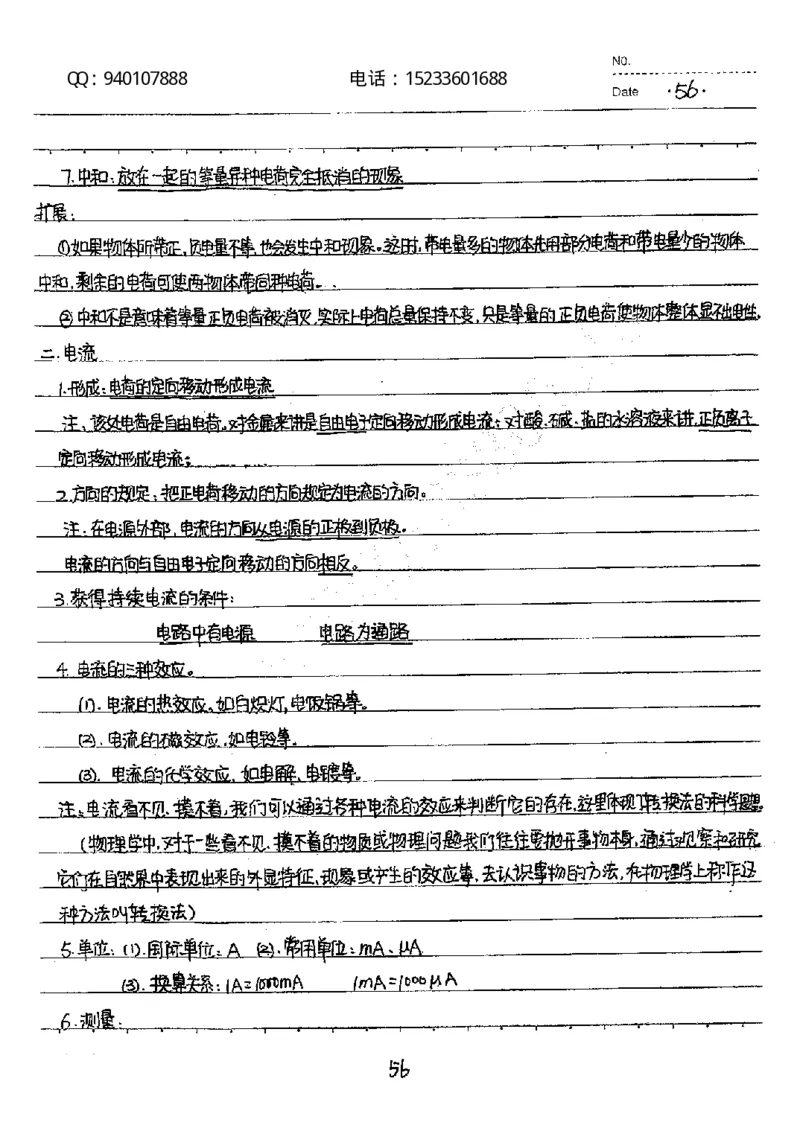 NO.
QQ：940107888 电话：15233601688
Date ·56·
7.中和：放在一起的等量异种电荷完全抵消的现象
扩展：
①如果物体所带正,负电量不等,也会发生中和现象。这时,带电量多的物体先用部分电荷和带电量少的物体
中和,剩余的电荷可使两物体带同种电荷。
②中和不是意味着等量正负电荷被消灭,实际上电荷总量保持不变,只是等量的正负电荷使物体整体显不出电性.
二.电流
1.形成：电荷的定向移动形成电流
注、该处电荷是自由电荷。对金属来讲是自由电子定向移动形成电流；对酸、碱、盐的水溶液来讲,正负离子
定向移动形成电流；
2.方向的规定：把正电荷移动的方向规定为电流的方向。
注：在电源外部,电流的方向从电源的正极到负极。
电流的方向与自由电子定向移动的方向相反。
3.获得持续电流的条件：
电路中有电源 电路为通路
4.电流的三种效应。
(1).电流的热效应、如白炽灯,电饭锅等。
(2).电流的磁效应,如电铃等。
(3).电流的化学效应,如电解、电镀等。
注：电流看不见、摸不着,我们可以通过各种电流的效应来判断它的存在,这里体现了转换法的科学思想
(物理学中,对于一些看不见、摸不着的物质或物理问题我们往往要抛开事物本身,通过观察和研究
它们在自然界中表现出来的外显特征,现象或产生的效应等,去认识事物的方法,在物理学上称作这
种方法叫转换法)
5.单位：(1).国际单位：A (2).常用单位：mA、μA
(3).换算关系：1A=1000mA 1mA=1000μA
6.测量：
56